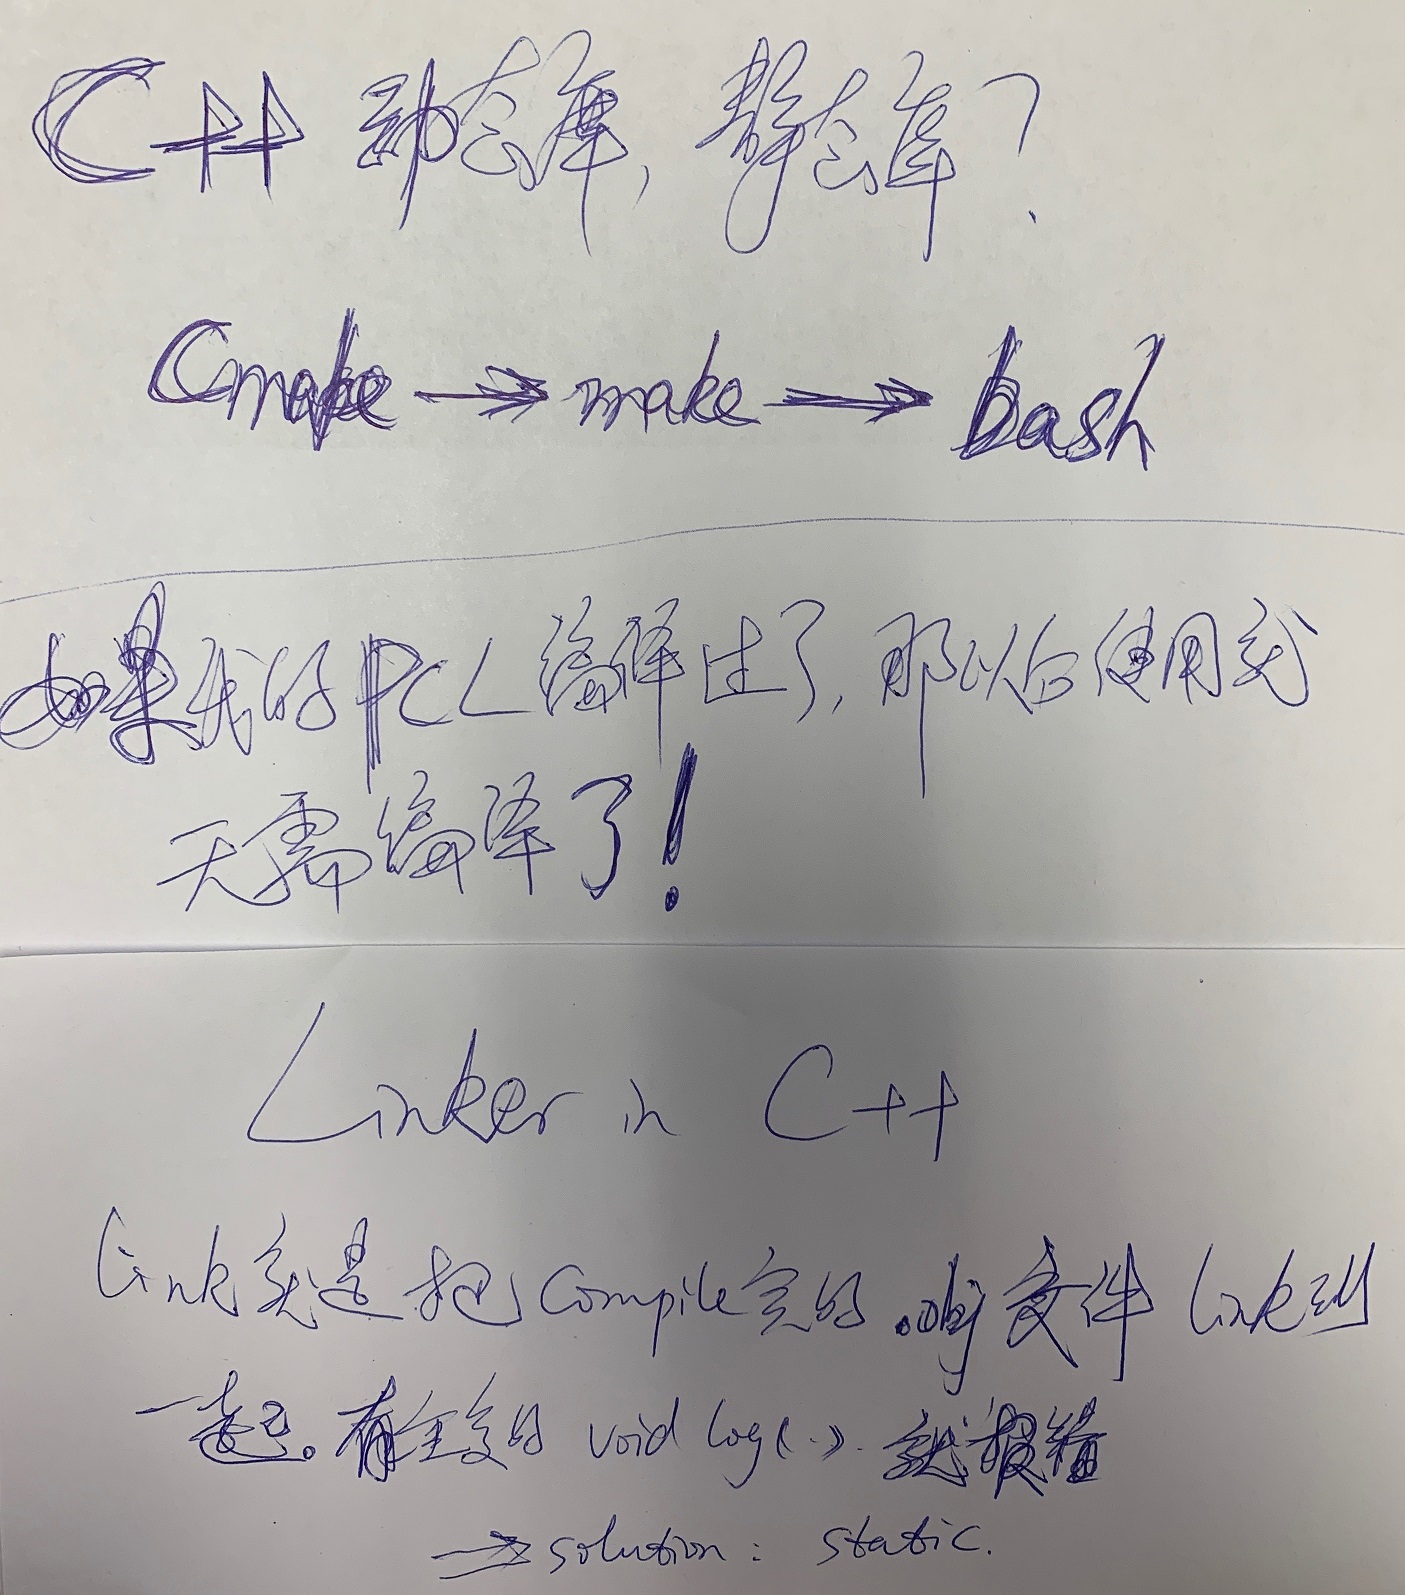 C++ 动态库, 静态库?
Cmake → make → bash
如果我的PCL编译过了, 那以后使用就
无需编译了!
Linker in C++
Link就是把Compile完的.obj文件 link到
一起。有重复的 void log(..). 就报错
→ solution: static.